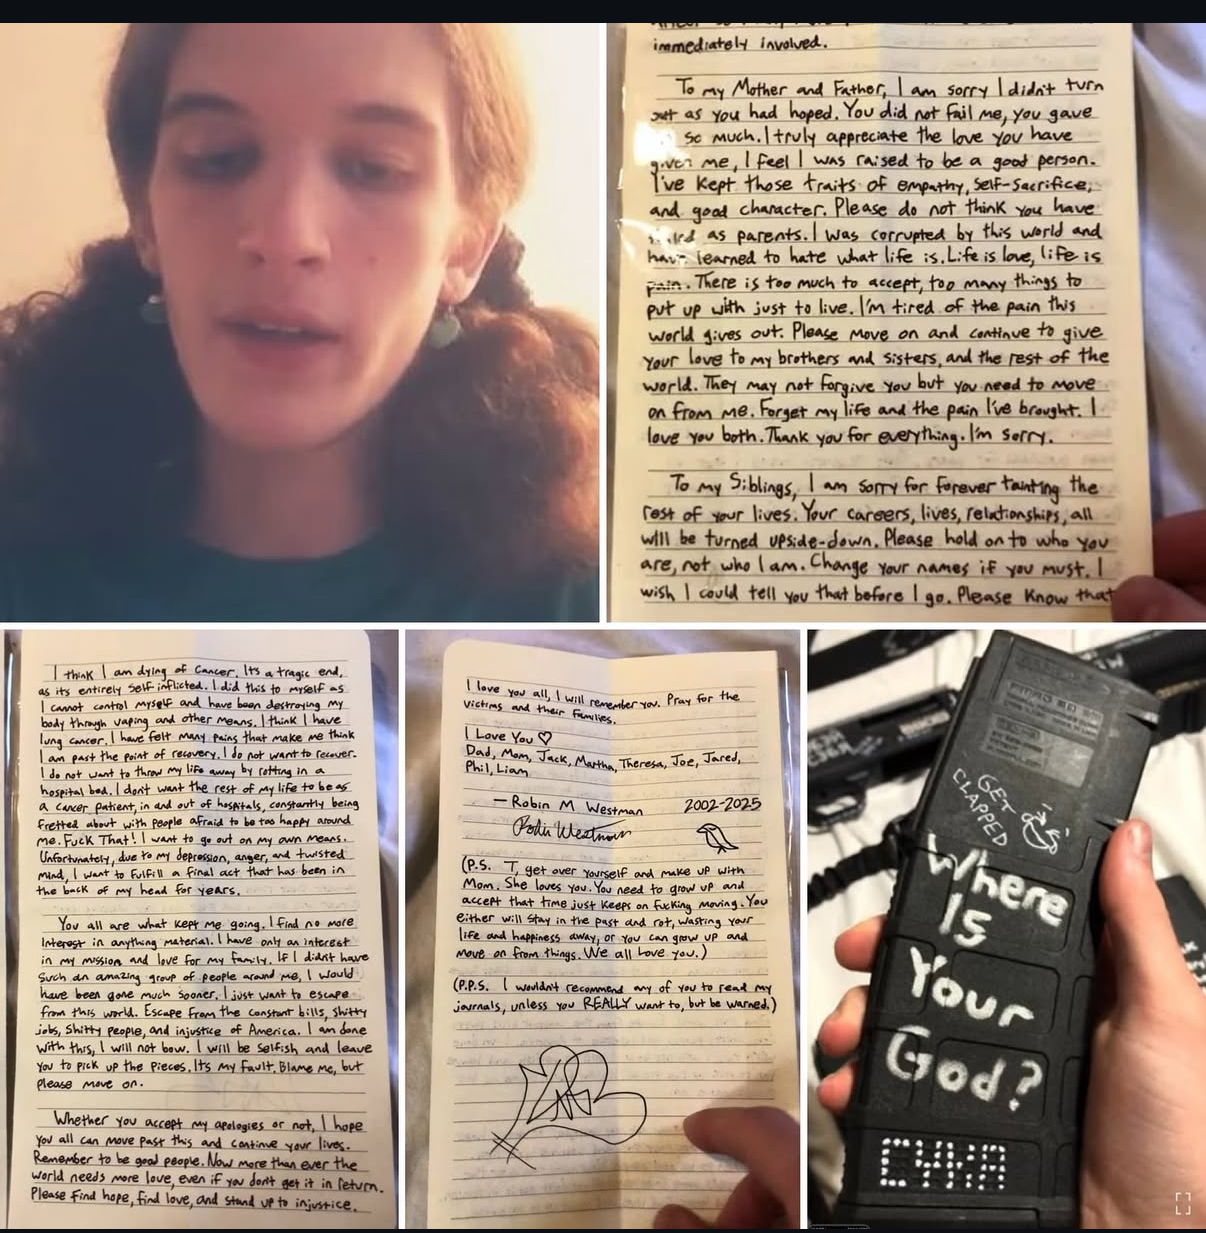 immediately involved.
To my Mother and Father, I am sorry I didn't turn
out as you had hoped. You did not fail me, you gave
so much. I truly appreciate the love you have
given me, I feel I was raised to be a good person.
I've kept those traits of empathy, self-sacrifice,
and good character. Please do not think you have
as parents. I was corrupted by this world and
have learned to hate what life is. Life is love, life is
pain. There is too much to accept, too many things to
put up with just to live. I'm tired of the pain this
world gives out. Please move on and continue to give
your love to my brothers and sisters, and the rest of the
world. They may not forgive you but you need to move
on from me. Forget my life and the pain I've brought. I
love you both. Thank you for everything. I'm sorry.
To my Siblings, I am sorry for forever tainting the
rest of your lives. Your careers, lives, relationships, all
will be turned upside-down. Please hold on to who you
are, not who I am. Change your names if you must. I
wish I could tell you that before I go. Please know that
I think I am dying of cancer. Its a tragic end,
as its entirely self inflicted. I did this to myself as
I cannot control myself and have been destroying my
body through vaping and other means. I think I have
lung cancer. I have felt many pains that make me think
I am past the point of recovery. I do not want to recover.
I do not want to throw my life away by rotting in a
hospital bed. I don't want the rest of my life to be as
a cancer patient, in and out of hospitals, constantly being
fretted about with people afraid to be too happy around
me. Fuck That! I want to go out on my own means.
Unfortunately, due to my depression, anger, and twisted
mind, I want to fulfill a final act that has been in
the back of my head for years.
You all are what kept me going. I find no more
interest in anything material. I have only an interest
in my mission and love for my family. If I didn't have
such an amazing group of people around me, I would
have been gone much sooner. I just want to escape
from this world. Escape from the constant bills, shitty
jobs, shitty people, and injustice of America. I am done
with this, I will not bow. I will be selfish and leave
you to pick up the pieces. It's my fault. Blame me, but
please move on.
Whether you accept my apologies or not, I hope
you all can move past this and continue your lives.
Remember to be good people. Now more than ever the
world needs more love, even if you don't get it in return.
Please find hope, find love, and stand up to injustice.
I love you all, I will remember you. Pray for the
victims and their families.
I Love You ♡
Dad, Mom, Jack, Martha, Theresa, Joe, Jared,
Phil, Liam
— Robin M Westman 2002-2025
Robin Westman
(P.S. T, get over yourself and make up with
Mom. She loves you. You need to grow up and
accept that time just keeps on fucking moving. You
either will stay in the past and rot, wasting your
life and happiness away, or you can grow up and
move on from things. We all love you.)
(P.P.S. I wouldn't recommend any of you to read my
journals, unless you REALLY want to, but be warned.)
GET
CLAPPED
Where
Is
Your
God?
СУКА